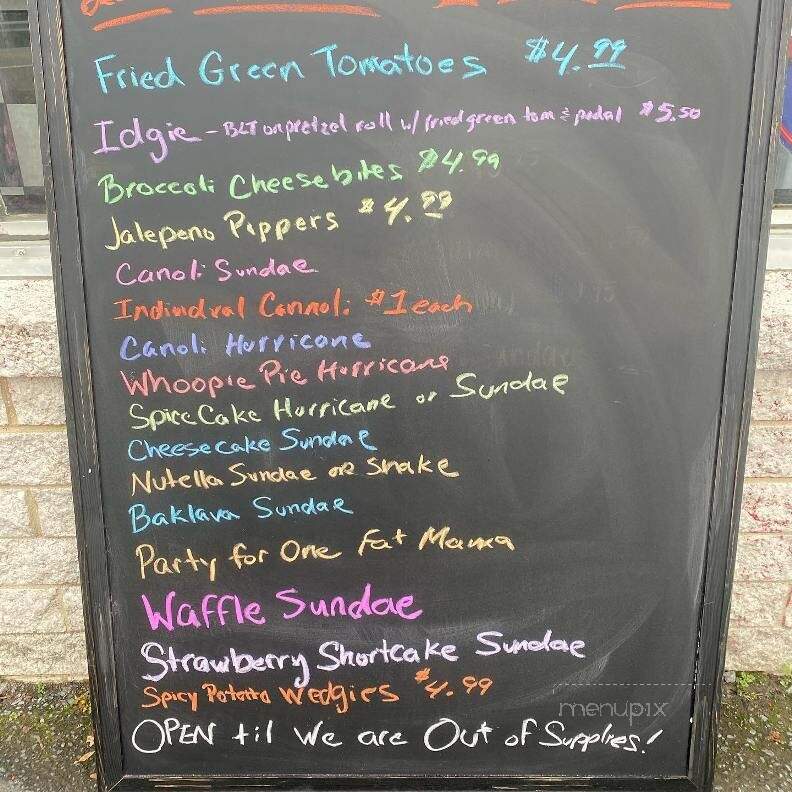 Fried Green Tomatoes $4.99
Idgie - BLT on pretzel roll w/ fried green tom & $5.50
Broccoli Cheese bites $4.99
Jalepeno Poppers $4.99
Canoli Sundae
Individual Cannoli $1 each
Canoli Hurricane
Whoopie Pie Hurricane
Spice Cake Hurricane or Sundae
Cheesecake Sundae
Nutella Sundae or Shake
Baklava Sundae
Party for One Fat Mama
Waffle Sundae
Strawberry Shortcake Sundae
Spicy Potato Wedgies $4.99
menupix
OPEN til We are Out of Supplies!